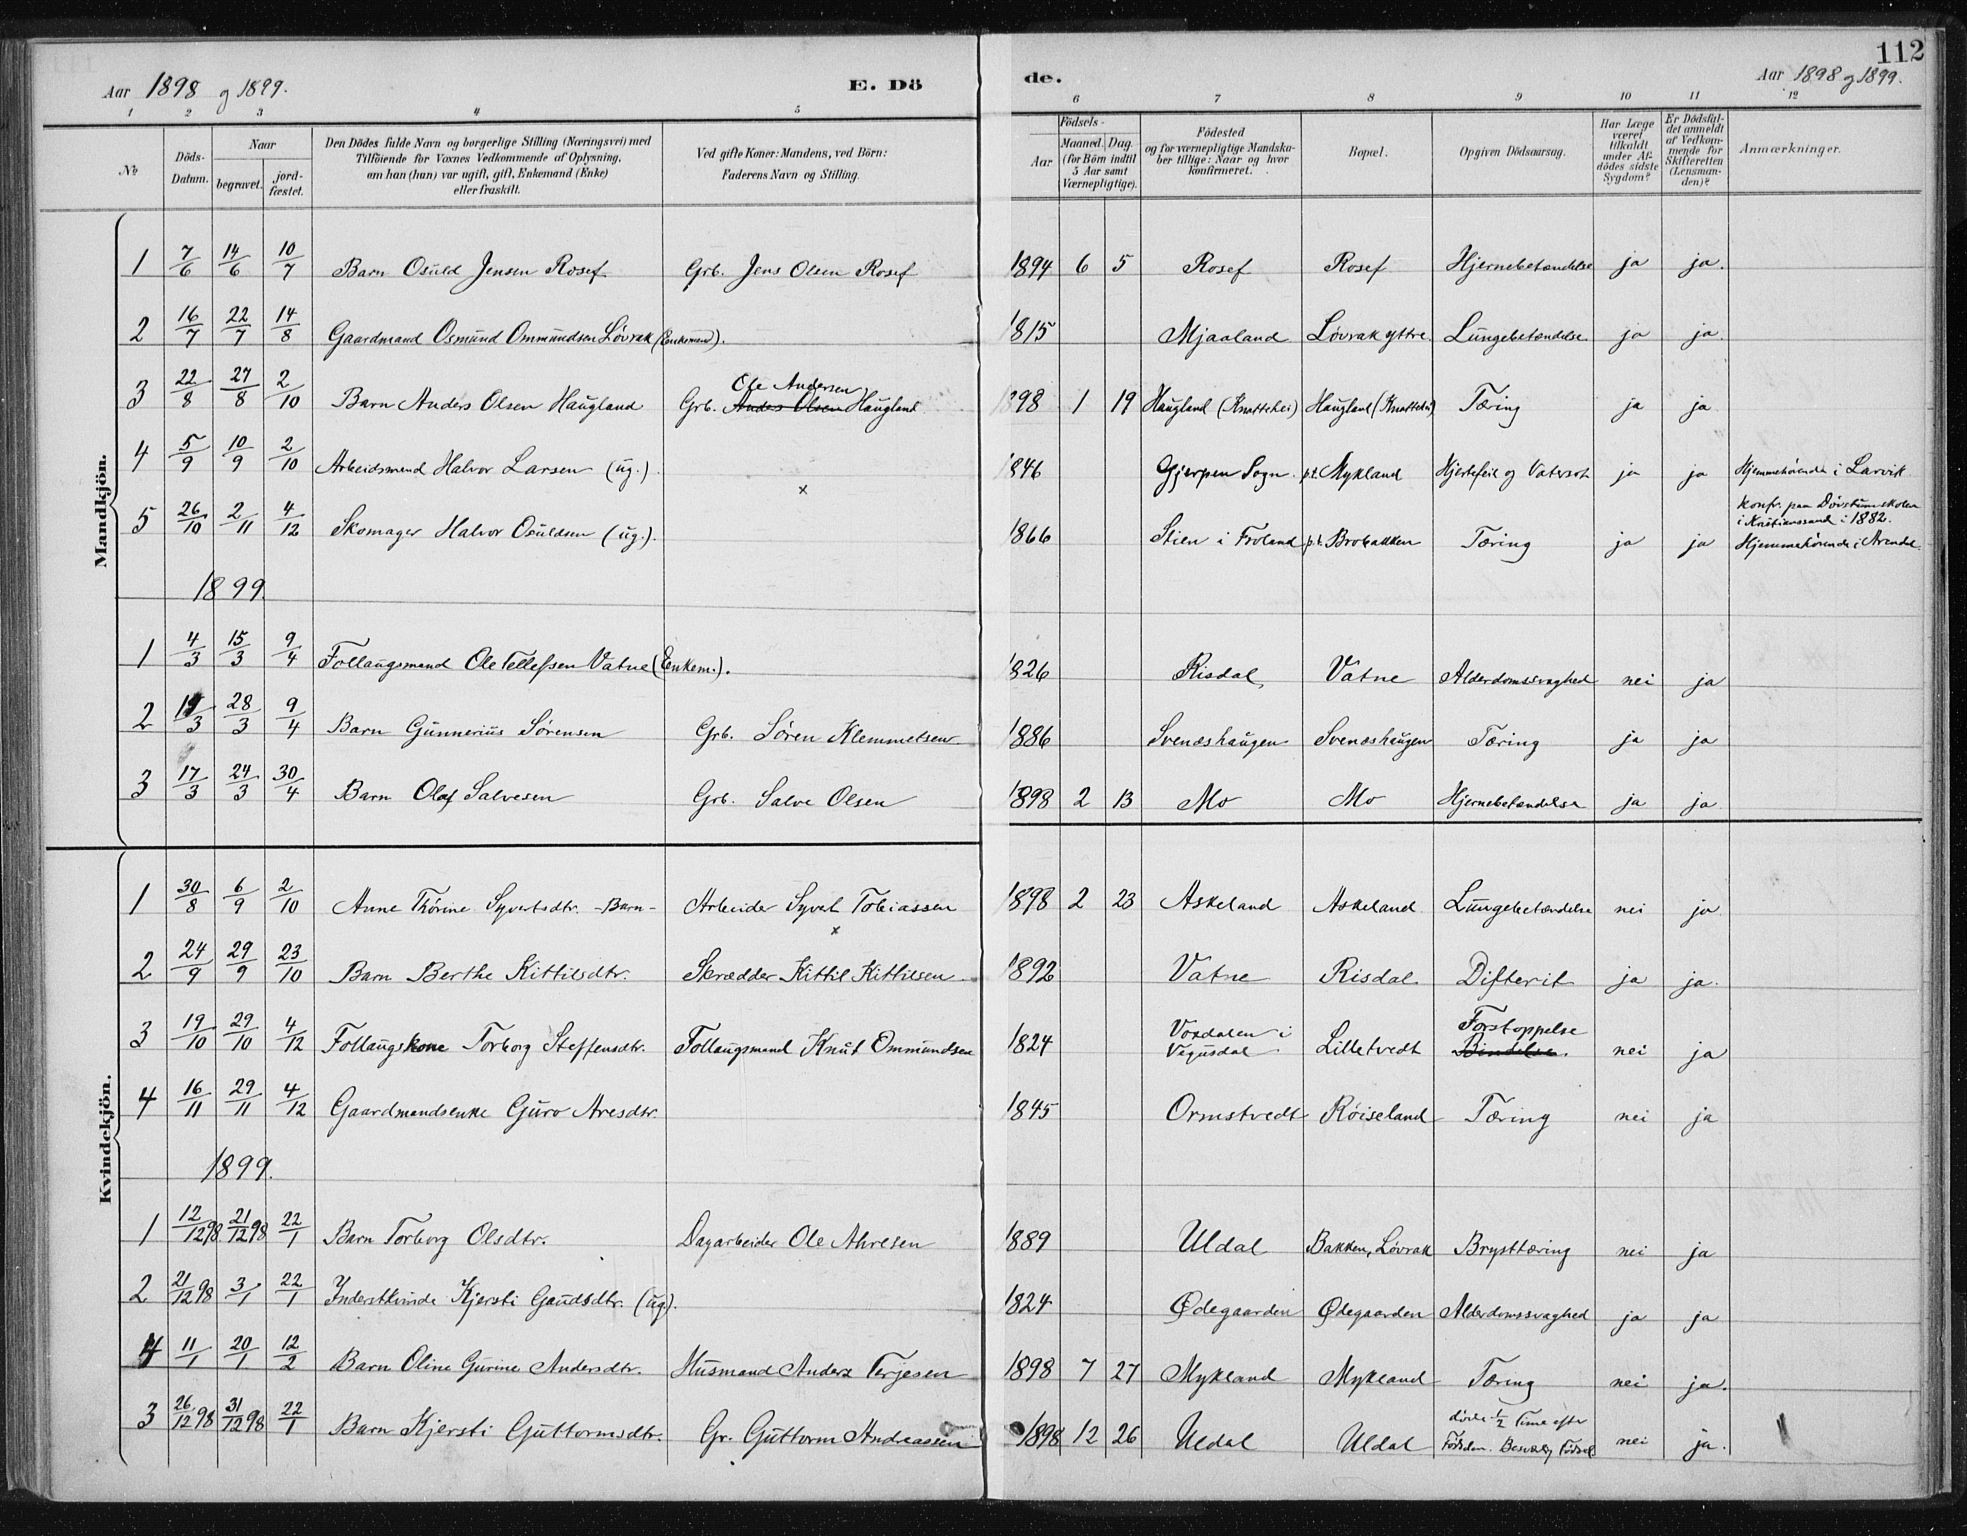 112
Aar 1898 og 1899.
E. Dö
de.
Aar 1898 og 1899.
1 2 3 4 5 6 7 8 9 10 11 12
No
Döds-Datum.
Naar
begravet.
jord-fæstet.
Den Dödes fulde Navn og borgerlige Stilling (Næringsvei) med
Tilföiende for Voxnes Vedkommende af Oplysning,
om han (hun) var ugift, gift, Enkemand (Enke)
eller fraskilt.
Ved gifte Koner: Mandens, ved Börn:
Faderens Navn og Stilling.
Födsels-
Aar
Maaned. Dag.
(for Börn indtil
5 Aar samt
Værnepligtige).
Födested
og for værnepligtige Mandska-
ber tillige: Naar og hvor
konfirmeret.
Bopæl.
Opgiven Dödsaarsag.
Har Læge
været
tilkaldt
under Af-
dödes sidste
Sygdom?
Er Dödsfal-
det anmeldt
af Vedkom-
mende for
Skifteretten
(Lensman-
den)?
Anmærkninger.
Mandkjön.
1 7/6 14/6 10/7 Barn Osuld Jensen Rosef Grb. Jens Olsen Rosef 1894 6 5 Rosef Rosef Hjernebetændelse ja ja.
2 16/7 22/7 14/8 Gaardmand Osmund Ommundsen Løvrak (Enkemand). 1815 Mjaaland Løvrak yttre Lungebetændelse ja ja.
3 22/8 27/8 2/10 Barn Anders Olsen Haugland Grb. Ole Andersen Anders Olsen Haugland 1898 1 19 Haugland (Knattehei) Haugland (Knattehei) Tæring ja ja
4 5/9 10/9 2/10 Arbeidsmand Halvor Larsen (ug.). x 1846 Gjerpen Sogn. p.t. Mykland Hjertefeil og Vatersot ja ja Hjemmehørende i Larvik
konfr. paa Døvstumskolen
i Kristianssand i 1882.
5 26/10 2/11 4/12 Skomager Halvor Osuldsen (ug.). 1866 Stien i Froland p.t. Brobakken Tæring ja ja Hjemmehørende i Arendal.
1899.
1 4/3 15/3 9/4 Follaugsmand Ole Tellefsen Vatne (Enkem.). 1826 Risdal Vatne Alderdomssvaghed nei ja
2 19/3 28/3 9/4 Barn Gunnerius Sørensen Grb. Søren Klemmetsen 1886 Svenæshaugen Svenæshaugen Tæring ja ja
3 17/3 24/3 30/4 Barn Olaf Salvesen Grb. Salve Olsen 1898 2 13 Mo Mo Hjernebetændelse ja ja
Kvindekjön.
1 30/8 6/9 2/10 Anne Thorine Syvertsdtr. -Barn- Arbeider Syvert Tobiassen 1898 2 23 Askeland Askeland Lungebetændelse nei ja
x
2 24/9 29/9 23/10 Barn Berthe Kittilsdtr. Skrædder Kittil Kittilsen 1892 Vatne Risdal Difterit ja ja.
3 19/10 29/10 4/12 Follaugskone Torborg Steffensdtr. Follaugsmand Knut Ommundsen 1824 Voxdalen i Vegusdal Lilletvedt Forstoppelse nei ja
4 16/11 29/11 4/12 Gaardmandsenke Guro Aresdtr. 1845 Ormstvedt Røiseland Tæring nei ja
1899.
1 12/12 98 21/12 98 22/1 Barn Torborg Olsdtr. Dagarbeider Ole Ahresen 1889 Uldal Bakken, Løvrak Brysttæring nei ja
2 21/12 98 3/1 22/1 Inderstkvinde Kjersti Gaudsdtr. (ug). 1824 Ødegaarden Ødegaarden Alderdomssvaghed ja ja
4 11/1 20/1 12/2 Barn Oline Gurine Andersdtr. Husmand Anders Terjesen 1898 7 27 Mykland Mykland Tæring nei ja.
3 26/12 98 31/12 98 22/1 Barn Kjersti Guttormsdtr. Gr. Guttorm Andreassen 1898 12 26 Uldal Uldal døde 1/2 Time efter Fødselen. Besværlig Fødsel nei ja.